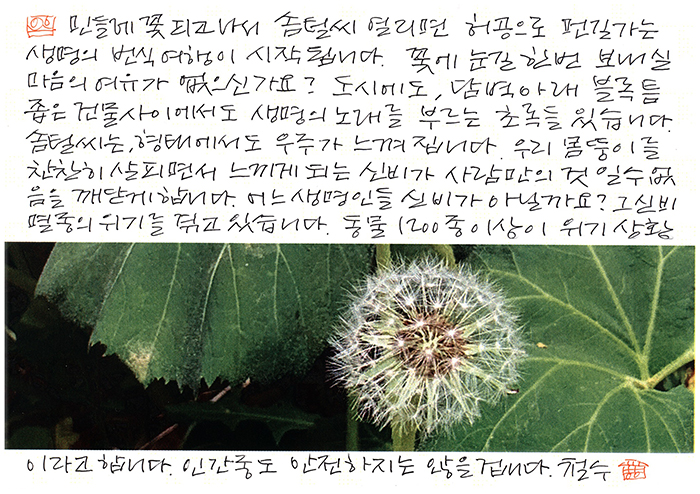 민들레꽃 피고나서 솜털씨 열리면 허공으로 먼길가는
생명의 번식여행이 시작됩니다. 꽃에 눈길 한번 보내실
마음의 여유가 없으신가요? 도시에도, 담벽아래 블록틈
좁은 건물사이에서도 생명의 노래를 부르는 초록들 있습니다.
솜털씨는, 형태에서도 우주가 느껴집니다. 우리 몸뚱이를
찬찬히 살피면서 느끼게 되는 신비가 사람만의 것 일수 없
음을 깨닫게합니다. 어느 생명인들 신비가 아닐까요? 그신비
멸종의 위기를 겪고 있습니다. 동물 1200종이상이 위기 상황
이라고 합니다. 인간종도 안전하지는 않을겁니다. 철수